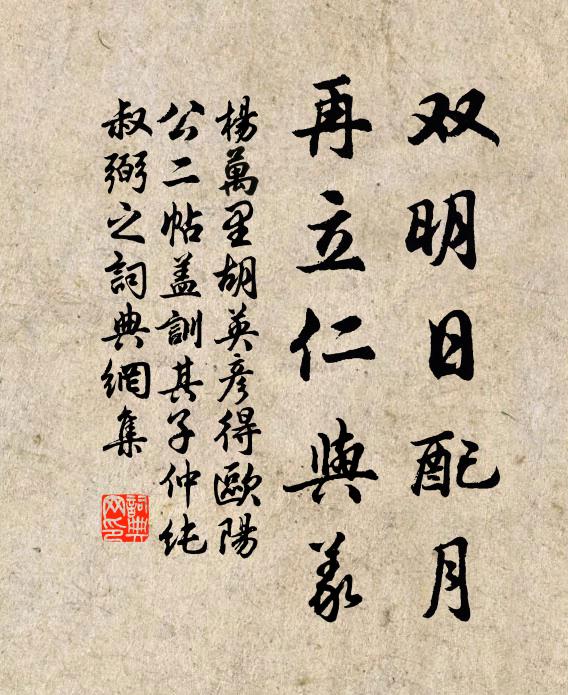 双明日配月
再立仁與義
楊萬里胡英彦得歐陽
公二帖蓋訓其子仲純
叔弼之詞典網集
詞典网印